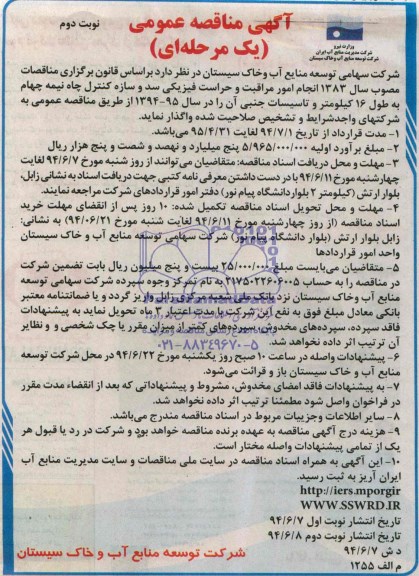 آگهی مناقصه عمومی
نوبت دوم
(یک مرحله‌ای)
وزارت نیرو
شرکت مدیریت منابع آب ایران
شرکت توسعه منابع آب و خاک سیستان
شرکت سهامی توسعه منابع آب وخاک سیستان در نظر دارد براساس قانون برگزاری مناقصات
مصوب سال ۱۳۸۳ انجام امور مراقبت و حراست فیزیکی سد و سازه کنترل چاه نیمه چهام
به طول ۱۶ کیلومتر و تاسیسات جنبی آن را در سال ۹۵-۱۳۹۴ از طریق مناقصه عمومی به
شرکتهای واجدشرایط و تشخیص صلاحیت شده واگذار نماید.
۱- مدت قرارداد از تاریخ ۹۴/۷/۱ لغایت ۹۵/۴/۳۱ می‌باشد.
۲- مبلغ برآورد اولیه ۵/۹۶۵/۰۰۰/۰۰۰ پنج میلیارد و نهصد و شصت و پنج هزار ریال
۳- مهلت و محل دریافت اسناد مناقصه: متقاضیان می‌توانند از روز شنبه مورخ ۹۴/۶/۷ لغایت
چهارشنبه مورخ ۹۴/۶/۱۱ با در دست داشتن معرفی نامه کتبی جهت دریافت اسناد به نشانی زابل،
بلوار ارتش (کیلومتر ۲ بلوار دانشگاه پیام نور) دفتر امور قراردادهای شرکت مراجعه نمایند.
۴- مهلت و محل تحویل اسناد مناقصه تکمیل شده: ۱۰ روز پس از انقضای مهلت خرید
اسناد مناقصه (از روز چهارشنبه مورخ ۹۴/۶/۱۱ لغایت شنبه مورخ ۹۴/۰۶/۲۱) به نشانی:
زابل بلوار ارتش (بلوار دانشگاه پیام نور) شرکت سهامی توسعه منابع آب و خاک سیستان
واحد امور قراردادها
۵- متقاضیان می‌بایست مبلغ ۲۵/۰۰۰/۰۰۰ بیست و پنج میلیون ریال بابت تضمین شرکت
در مناقصه را به حساب ۲۱۷۵۰۲۲۶۰۶۰۰۵ به نام تمرکز وجوه سپرده شرکت سهامی توسعه
منابع آب وخاک سیستان نزد بانک ملی شعبه مرکزی زابل واریز گردد و یا ضمانتنامه معتبر
بانکی معادل مبلغ فوق به نفع این شرکت با مدت اعتبار ۳ ماه تحویل نماید به پیشنهادات
فاقد سپرده، سپرده‌های مخدوش، سپرده‌های کمتر از میزان مقرر یا چک شخصی و و نظایر
آن ترتیب اثر داده نخواهد شد.
۰۲۱-۸۸۳۴۹۶۷۰-۵
۶- پیشنهادات واصله در ساعت ۱۰ صبح روز یکشنبه مورخ ۹۴/۶/۲۲ در محل شرکت توسعه
منابع آب و خاک سیستان باز و قرائت می‌شود.
۷- به پیشنهادات فاقد امضای مخدوش، مشروط و پیشنهاداتی که بعد از انقضاء مدت مقرر
در فراخوان واصل شود مطمئنا ترتیب اثر داده نخواهد شد.
۸- سایر اطلاعات وجزییات مربوط در اسناد مناقصه مندرج می‌باشد.
۹- هزینه درج آگهی مناقصه به عهده برنده مناقصه خواهد بود و شرکت در رد یا قبول هر
یک از تمامی پیشنهادات واصله مختار است.
۱۰- این آگهی به همراه اسناد مناقصه در سایت ملی مناقصات و سایت مدیریت منابع آب
ایران آریز به ثبت رسید.
http://iers.mporgir
WWW.SSWRD.IR
تاریخ انتشار نوبت اول ۹۴/۶/۷
تاریخ انتشار نوبت دوم ۹۴/۶/۸
د ش ۹۴/۶/۷
م الف ۱۲۵۵
شرکت توسعه منابع آب و خاک سیستان